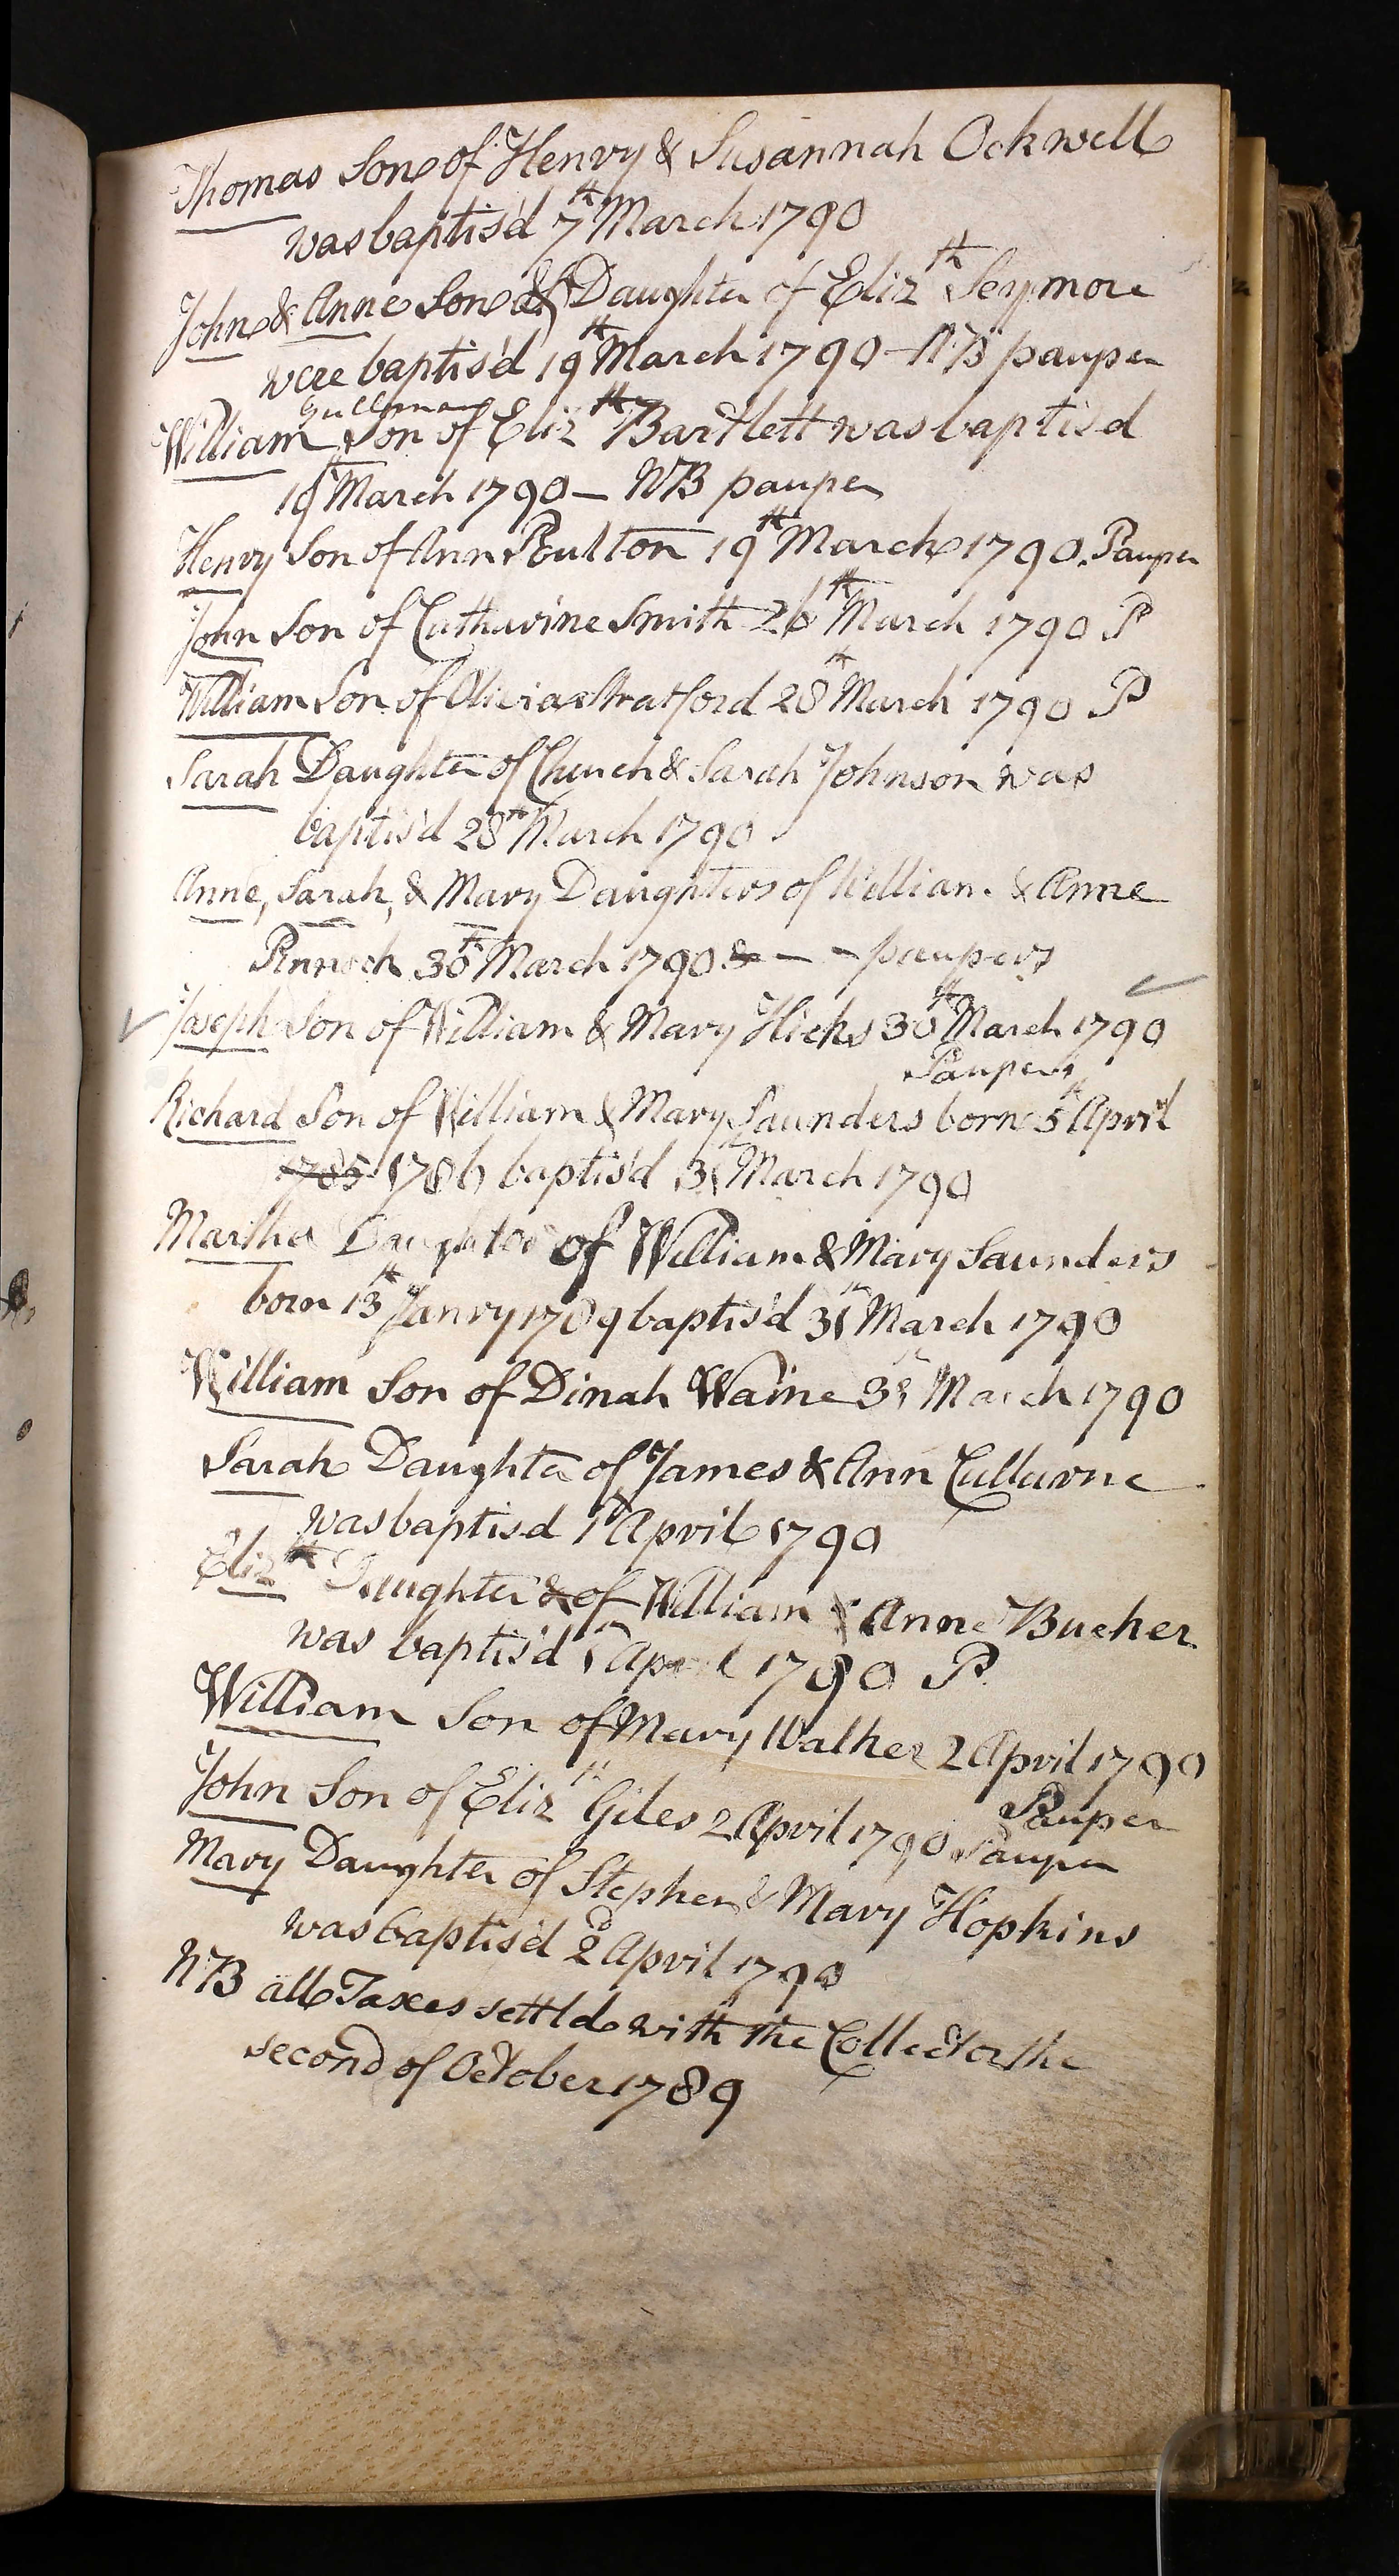 Thomas Son of Henry & Susannah Ockwell
was baptis'd 7th March 1790
John & Anne Son & Daughter of Elizth Seymore
were baptis'd 19th March 1790 - NB pauper
William Son of Elizth Bartlett was baptis'd
19th March 1790 - NB pauper
Henry Son of Ann Poulton 19th March 1790. Pauper
John Son of Catharine Smith 26th March 1790 P
William Son of Olivia Stratford 28th March 1790 P
Sarah Daughter of Church & Sarah Johnson was
baptis'd 28th March 1790
Anne, Sarah, & Mary Daughters of William & Anne
Pinnoch 30th March 1790 - - paupers
Joseph Son of William & Mary Hicks 30th March 1790
Paupers
Richard Son of William & Mary Saunders born 5th April
1785 1786 baptis'd 31 March 1790
Martha Daughter of William & Mary Saunders
born 13th Janry 1789 baptis'd 31st March 1790
William Son of Dinah Waine 31st March 1790
Sarah Daughter of James & Ann
was baptis'd 1st April 1790
Elizth Daughter & of William & Anne Bucher
was baptis'd 1st April 1790 P.
William Son of Mary Walker 2 April 1790
Pauper
John Son of Elizth Giles 2 April 1790 Pauper
Mary Daughter of Stephen & Mary Hopkins
was baptis'd 2d April 1790
NB all Taxes settld with the Collector the
second of October 1789